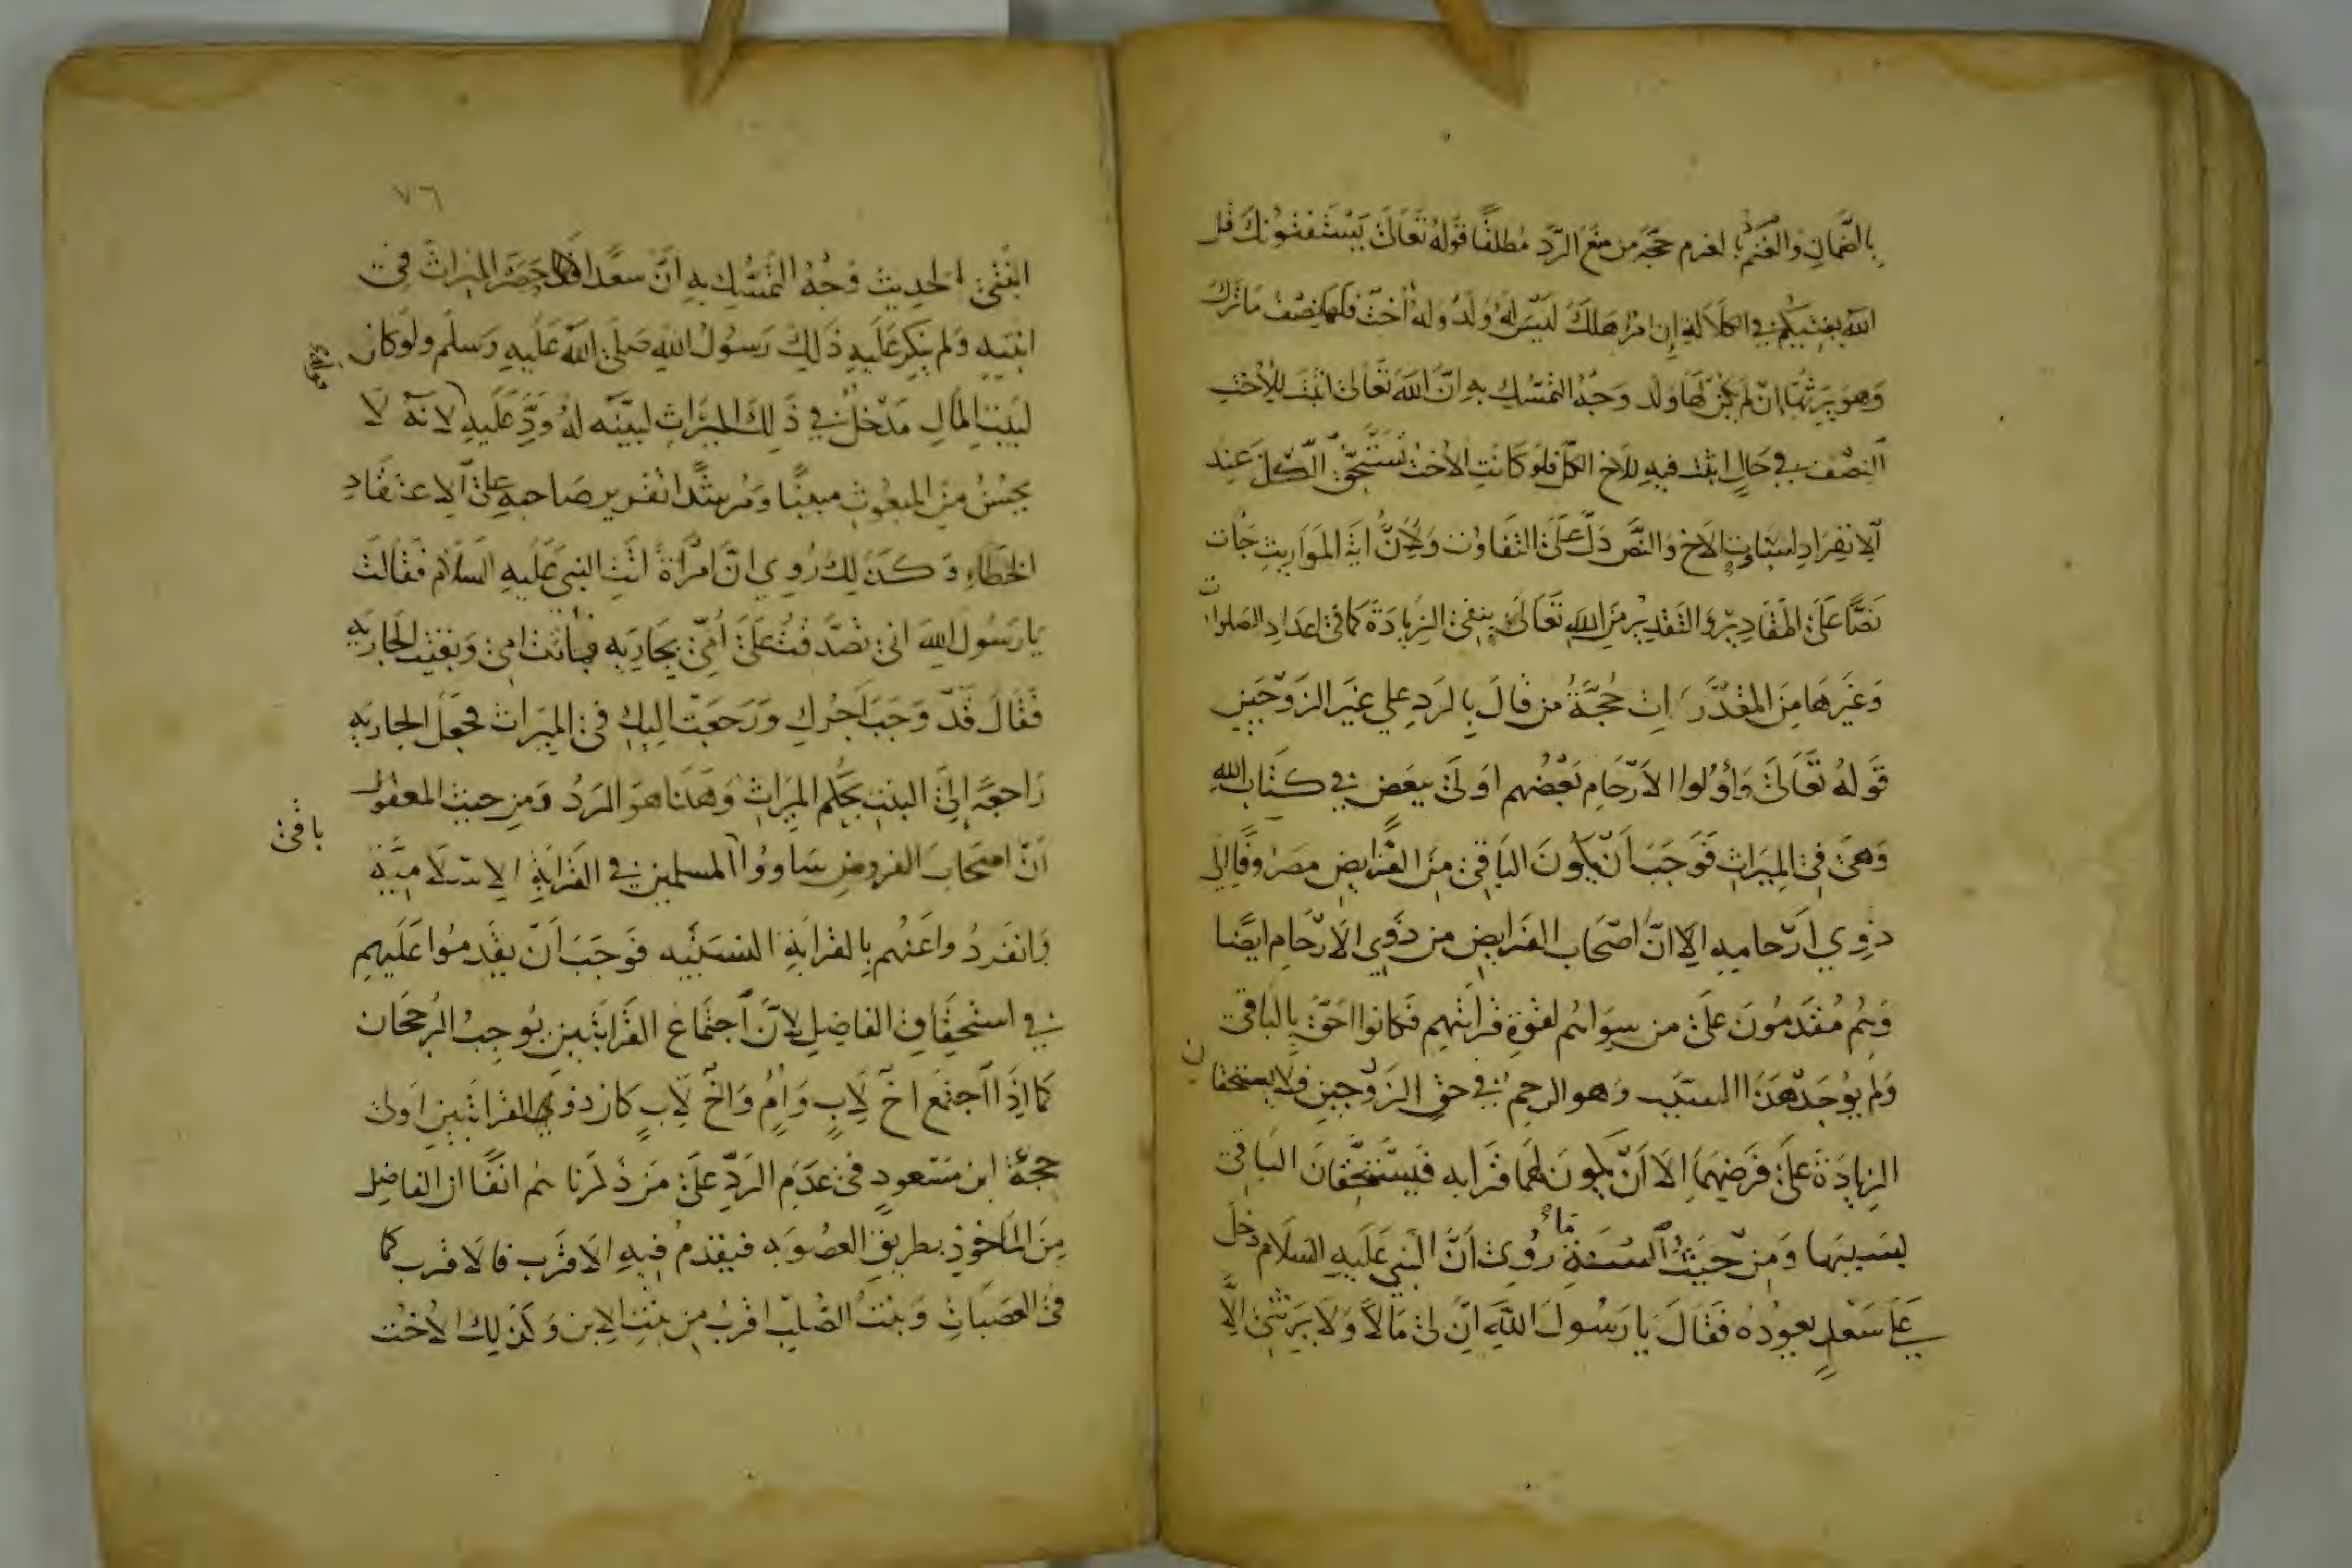 بالضمان والغنم بالغرم حجة من منع الرد مطلقا قوله تعالى يستفتونك قل
الله يفتيكم في الكلالة إن امرؤ هلك ليس له ولد وله أخت فلها نصف ما ترك
وهو يرثها إن لم يكن لها ولد وجه التمسك به ان الله تعالى اثبت للأخت
النصف في حال اثبت فيه للاخ الكل فلو كانت الاخت تستحق الكل عند
الانفراد لساوت الاخ والنص دل على التفاوت ولان اية المواريث جات
نصا على المقادير والتقدير من الله تعالى ينفي الزيادة كما في اعداد الصلوات
وغيرها من المقدرات حجة من قال بالرد على غير الزوجين
قوله تعالى وأولوا الارحام بعضهم اولى ببعض في كتاب الله
وهي في الميراث فوجب أن يكون الباقي من الفرايض مصروفا إلى
ذوي ارحامه الا ان اصحاب الفرايض من ذوي الارحام ايضا
وهم مقدمون على من سواهم لقوة قرابتهم فكانوا احق بالباقي
ولم يوجد هذا السبب وهو الرحم في حق الزوجين فلا يستحقان
الزيادة على فرضهما الا أن يكون لهما قرابه فيستحقان الباقي
بسببها ومن حيث السنة ما روى أن النبي عليه السلام دخل
على سعد يعوده فقال يا رسول الله ان لي مالا ولا يرثني الا
٧٦
ابنتي الحديث وجه التمسك به ان سعدا حصر الميراث في
ابنتيه ولم ينكر عليه ذلك رسول الله صلى الله عليه وسلم ولو كان
لبيت المال مدخل في ذلك الميراث لبينه له ورد عليه لانه لا
يحسن من المبعوث مبينا ومرشدا تقرير صاحبه على الاعتقاد
الخطاء وكذلك روي ان امرأة اتت النبي عليه السلام فقالت
يا رسول الله اني تصدقت على أمي بجاريه فماتت امي وبقيت الجاريه
فقال قد وجب اجرك ورجعت اليك في الميراث فجعل الجاريه
راجعة إلى البنت بحكم الميراث وهذا هو الرد ومن حيث المعقول
أن اصحاب الفروض ساووا المسلمين في القرابة الاسلامية
باقي
وانفردوا عنهم بالقرابة النسبيه فوجب أن يقدموا عليهم
في استحقاق الفاضل لان اجتماع القرابتين يوجب الرجحان
كما اذا اجتمع اخ لاب وأم واخ لاب كان ذو القرابتين اولى
حجة ابن مسعود في عدم الرد على من ذكرناهم انفا ان الفاضل
من الماخوذ بطريق العصوبه فيقدم فيه الاقرب فالاقرب كما
في العصبات وبنت الصلب اقرب من بنت الابن وكذلك الاخت